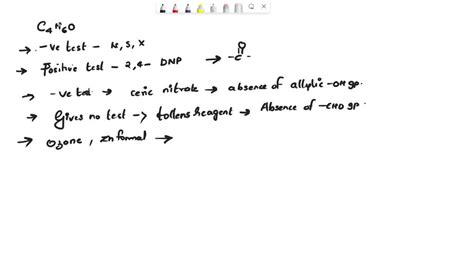 C4H6O
→ -ve test - N, S, X
→ Positive test - 2,4- DNP → -C- O
→ -ve test → ceric nitrate → absence of allylic -OH gp.
→ Gives no test → tollens reagent → Absence of -CHO gp.
→ Ozone, Zn formal →